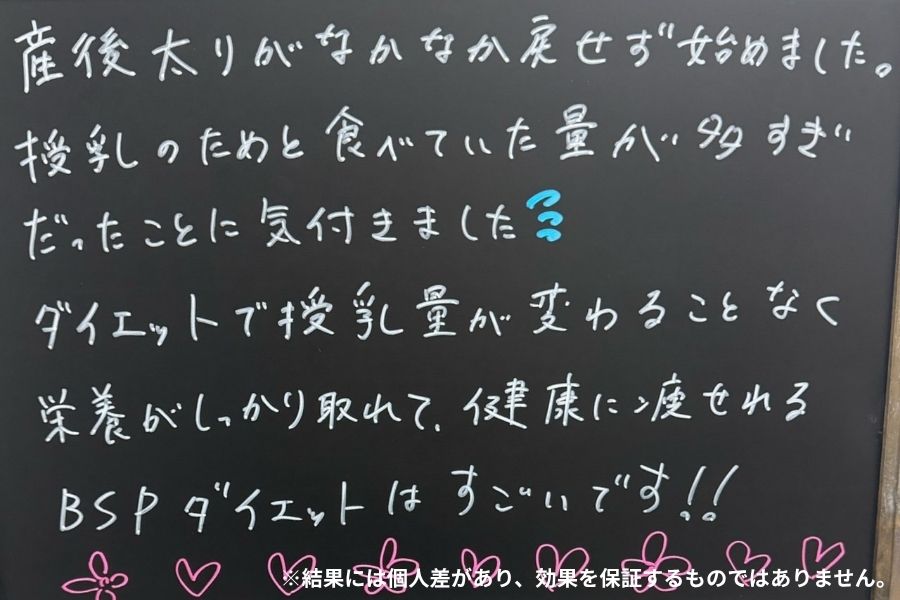 産後太りがなかなか戻せず始めました。
授乳のためと食べていた量が多すぎ
だったことに気付きました
ダイエットで授乳量が変わることなく
栄養がしっかり取れて、健康に痩せれる
BSPダイエットはすごいです!!
※結果には個人差があり、効果を保証するものではありません。